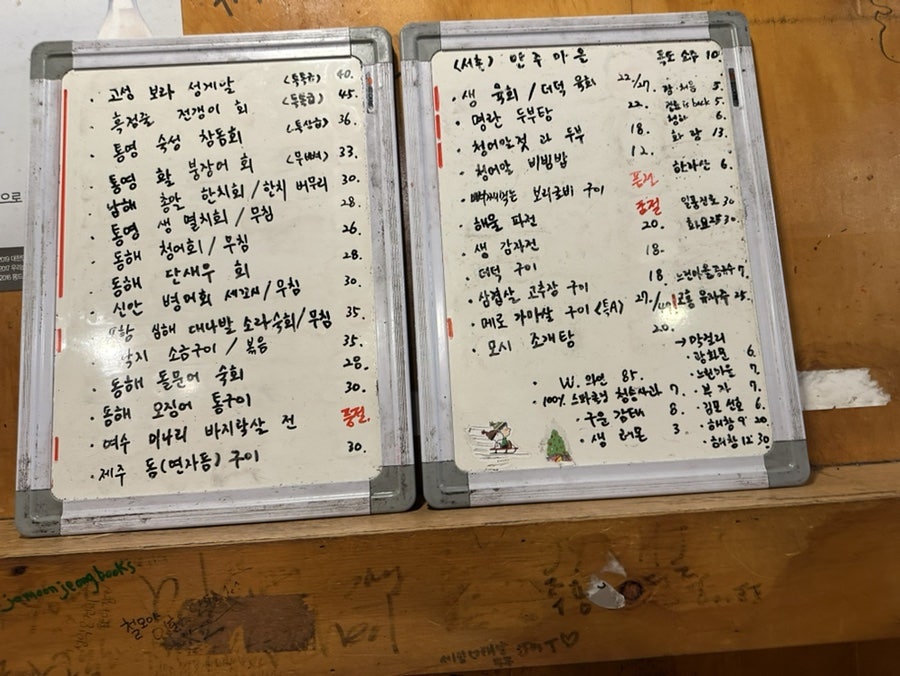 · 고성 보라 성게알 40.
흑점줄 전갱이 회 45.
· 통영 숙성 참돔회 (특상급) 36.
· 통영 활 붕장어 회 33.
· 남해 총알 한치회/한치 버무리 30.
· 통영 생 멸치회/무침 28.
· 동해 청어회/무침 26.
· 동해 단새우 회 28.
· 신안 병어회 세꼬시/무침 30.
심해 대나발 소라숙회/무침 35
낙지 소금구이/볶음 35.
· 동해 돌문어 숙회 28.
· 동해 오징어 통구이 30.
· 여수 미나리 바지락살 전 품절
· 제주 돔(연자돔) 구이 30.
(서촌) 안주마을
· 생 육회/더덕 육회 22./27.
· 명란 두부탕 22.
· 청어알젓과 두부 18.
· 청어알 비빔밥 12.
보리굴비 구이 품절
· 해물 파전 품절
· 생 감자전 20.
· 더덕 구이 18.
· 삼겹살 고추장 구이 18
· 메로 가마살 구이 (특A) 27./40
· 모시 조개탕 20.
소주 10.
처음 5.
is back 5.
청하 6.
화랑 13.
한라산 6.
일품진로 30
화요25 30.
느린마을증류주 7.
고흥 유자주 25.
→ 막걸리
· 광화문 6.
· 느린마을 7.
· 부자 7.
· 김포 선호 6.
· 해창 9 20
· 해창 12 30
· W. 와인 85.
· 100% 스파클링 청송사과 7
· 구운 감태 8.
· 생 레몬 3
jemoonjeongbooks
철모야